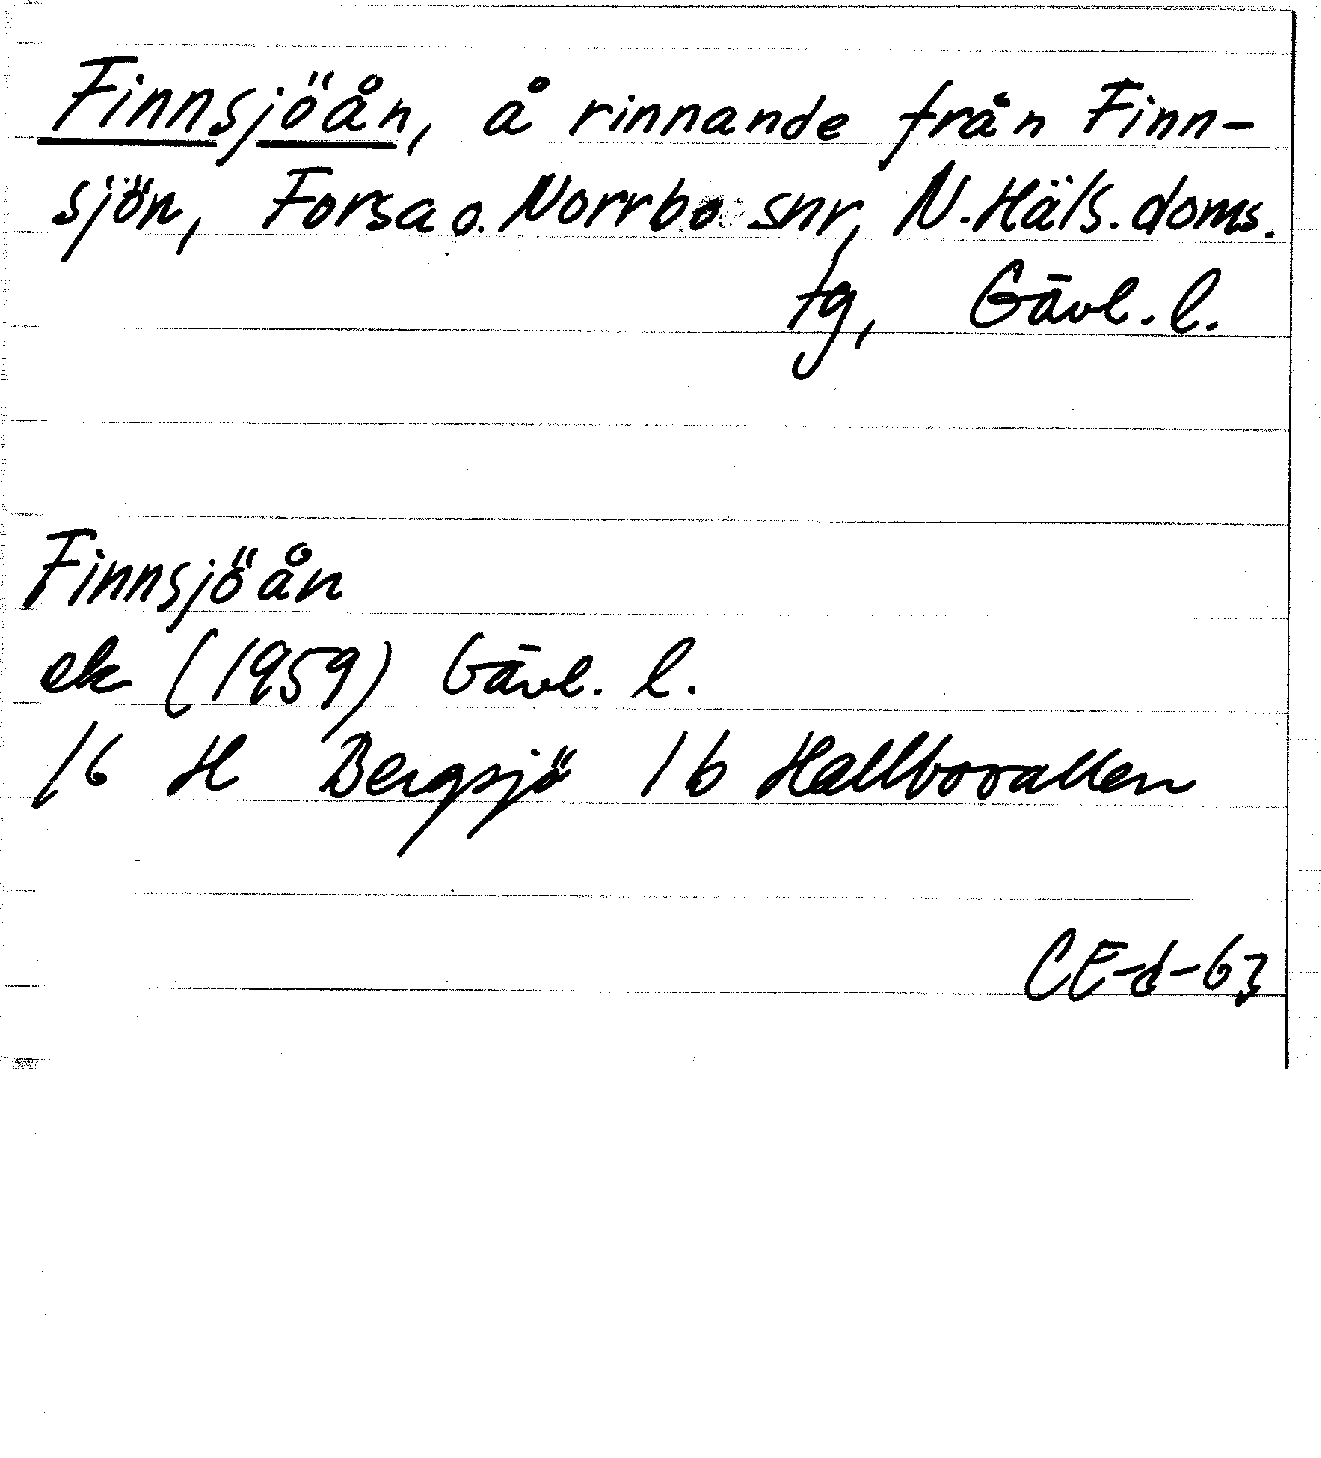 Finnsjöån, å rinnande från Finn-
sjön, Forsa o. Norrbo snr, N. Häls. doms.
tg, Gävl. l.
Finnsjöån
ek (1959) Gävl. l.
16 H Bergsjö 1b Hallbovallen
CE-d-63